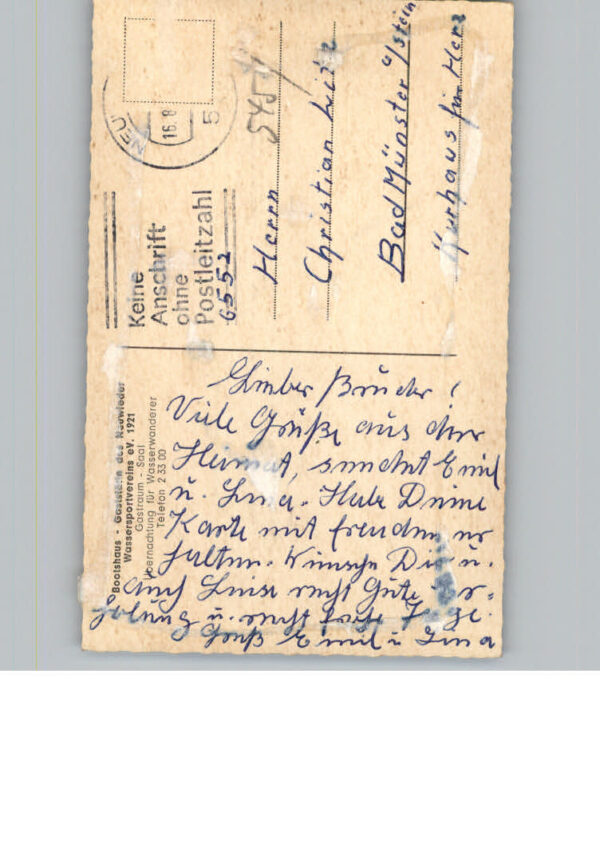 Bootshaus - Gaststätte des Neuwieder
Wassersportvereins eV. 1921
Gastraum - Saal
Übernachtung für Wasserwanderer
Telefon 2 33 00
Lieber Bruder!
Viele Grüße aus der
Heimat, sendet Emil
u. Lina. Habe Deine
Karte mit freuden er
halten. Wünsche Dir u.
auch Luise recht Gute Er=
holung u. recht Tage.
Gruß Emil u Lina
NEU
16.8
5
Keine
Anschrift
ohne
Postleitzahl
6552
5454
Herrn
Christian
Bad Münster a/stein
Kurhaus für Herz